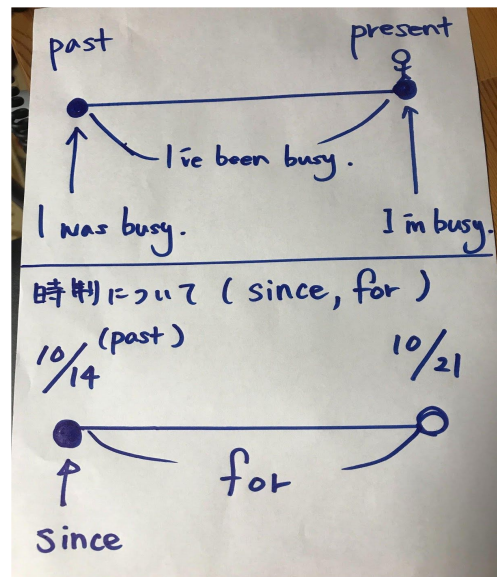 past
present
I've been busy.
I was busy.
I'm busy.
時制について ( since, for )
10/14 (past)
10/21
for
since